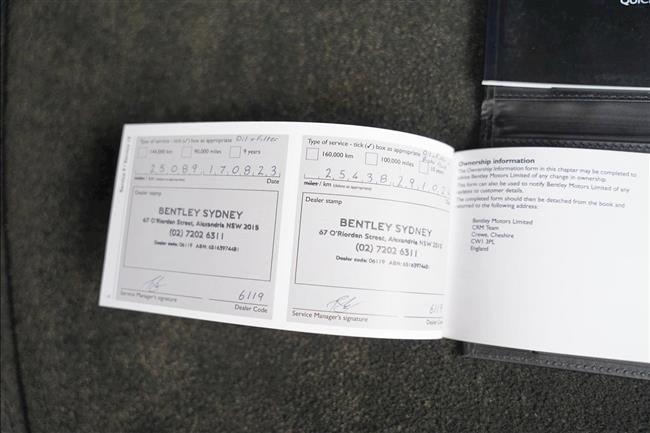 QUIC
Type of service - tick (✓) box as appropriate Oil + Filter
144,000 km 90,000 miles 9 years
25089 170823
miles / km (delete as appropriate) Date
Dealer stamp
BENTLEY SYDNEY
67 O'Riordan Street, Alexandria NSW 2015
(02) 7202 6311
Dealer code: 06119 ABN: 65163974481
6119
Service Manager's signature Dealer Code
Type of service - tick (✓) box as appropriate
160,000 km 100,000 miles 10 years
25438 2910
miles / km (delete as appropriate)
Dealer stamp
BENTLEY SYDNEY
67 O'Riordan Street, Alexandria NSW 2015
(02) 7202 6311
Dealer code: 06119 ABN: 65163974481
6119
Service Manager's signature Dealer
Ownership information
The Ownership Information form in this chapter may be completed to
advise Bentley Motors Limited of any change in ownership.
This form can also be used to notify Bentley Motors Limited of any
to customer details.
The completed form should then be detached from the book and
returned to the following address:
Bentley Motors Limited
CRM Team
Crewe, Cheshire
CW1 3PL
England